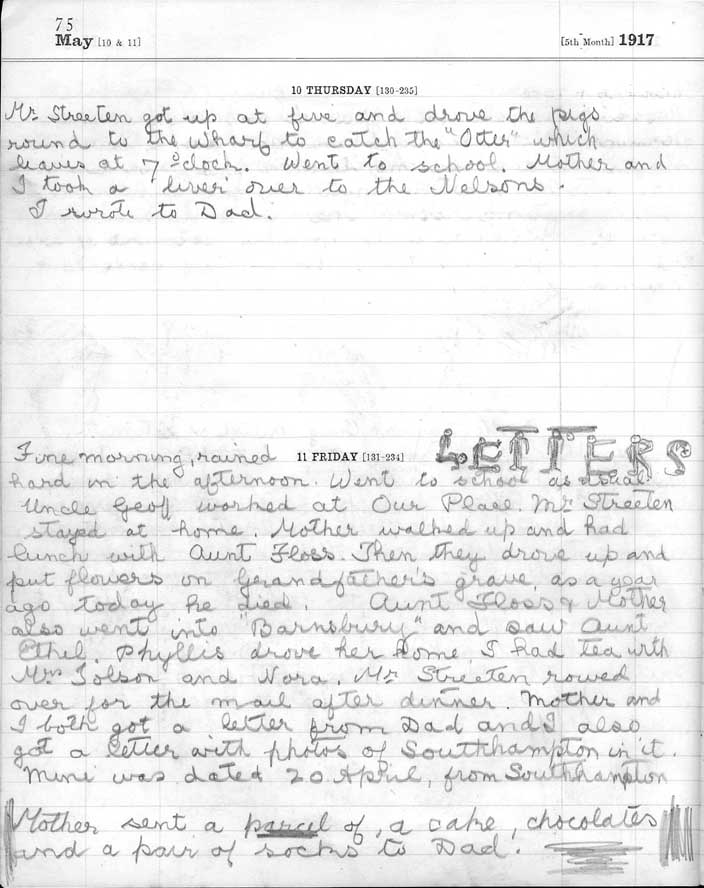 75
May [10 & 11] [5th Month] 1917
10 THURSDAY [130-235]
Mr Streeten got up at five and drove the pigs
round to the wharf to catch the "Otter" which
leaves at 7 o'clock. Went to school. Mother and
I took a 'liver' over to the Nelsons.
I wrote to Dad.
LETTERS
Fine morning, rained 11 FRIDAY [131-234]
hard in the afternoon. Went to school as usual.
Uncle Geoff worked at Our Place. Mr Streeten
stayed at home. Mother walked up and had
lunch with Aunt Floss. Then they drove up and
put flowers on Grandfather's grave, as a year
ago today he died. Aunt Floss & Mother
also went into "Barnsbury" and saw Aunt
Ethel. Phyllis drove her home. I had tea with
Mrs Tolson and Nora. Mr Streeten rowed
over for the mail after dinner. Mother and
I both got a letter from Dad and I also
got a letter with photos of Southhampton in it.
Mine was dated 20 April, from Southhampton
Mother sent a parcel of, a cake, chocolates
and a pair of socks to Dad.